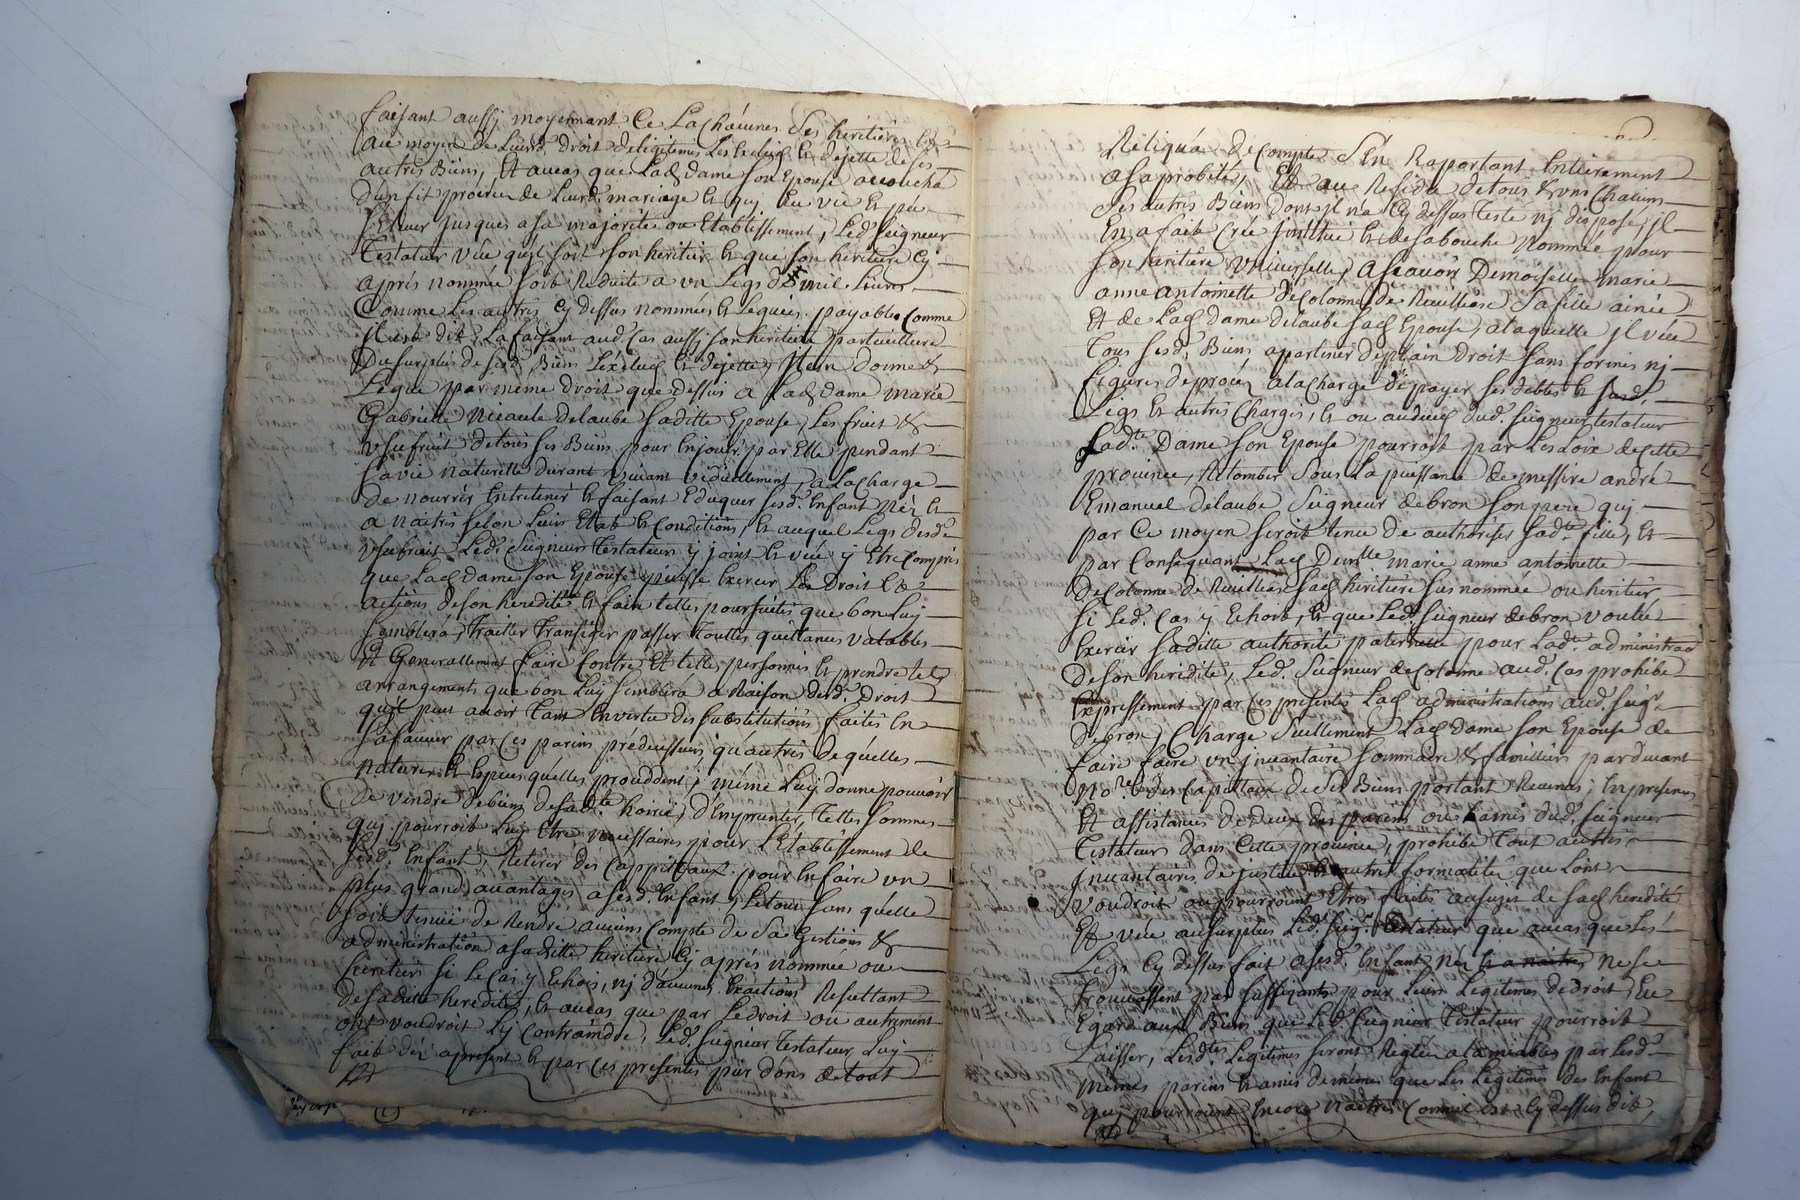 faisant aussy moyennant ce Lachacunes Ses heritieres &
au moyen de Leurd. droit de legitimes Les exclus & dejette de ses
autres Biens, Et aucas que Lad. dame son Epouse accoucha
d'un fit procréé de Leurd. mariage & qui eu vie
jusques a sa majorité ou Etablissement, Led. Seigneur
Testateur veut quil soit son heritier & que son heritiere cy
après nommée soit Reduite a un Legs de mil Livres
Comme Les autres cy dessus nommées & Leguées. payables comme
il est dit, La faisant aud. cas aussy son heritiere particulliere
Du surplus de sesd. Biens L'exclus & dejette, Item donne &
Legue par meme droit que dessus a Lad. dame marie
Gabrielle delaube saditte Epouse, Les fruit &
usufruit de tous ses Biens pour En jouir par Elle pendant
sa vie naturelle durant vivant viduellement, a La charge
de nourrir Entretenir & faisant Eduquer sesd. Enfant Néz &
a naitres selon Leurs Etat & Conditions, & auquel Legs desd.
usufruit Led. Seigneur Testateur y joint & veut y Etre Compris
que Lad. dame son Epouse puisse Exercer Les Droit &
actions de son heredité & faire telles poursuites que bon Luy
semblera, Traitter Transiger passer Touttes quittances valables
Et Generallement faire Contre Et telle personnes & prendre tels
arrangements que bon Luy semblera a Raison desd. Droit
quil peut auoir Tant En vertu des substitutions faites En
sa faueur par ces parens prédecesseurs qu'autres de quelles
natures & Especes quelles proceddent, même Luy donne pouvoir
De vendre de biens de sad.te hoirie, d'Emprunter, Telles sommes
qui pourroit Luy Etre necessaires pour L'Etablissement de
sesd. Enfant, Retirer des Cappitaux pour En faire un
plus grand auantages a sesd. Enfant, Le tout sans quelle
soit tenuë de Rendre aucuns Compte de Sa Gestions &
administration a saditte heritiere Cy après nommée ou
heritiers si Le Cas y Echois, nj d'aucunes Exactions Resultant
de saditte heredité, & aucas que par Le droit ou autrement
ont voudroit L'y Contraindre, Led. Seigneur Testateur Luy
fait déz apresent & par ces presentes pur dons de tout
Reliqua de Compte S'En Raportant Entierement
a sa probité, Et au Residu de tous & uns Chacuns
Ses autres Biens Dont jl n'a Cy dessus Testé nj disposé, jl
En a fait Créé jnstitué & de sa bouche Nommée pour
son heritiere Universelle, Ascavoir Demoiselle marie
anne antoinette De Colonne de Sa fille ainée
Et de Lad. dame delaube sad. Epouse, alaquelle jl veut
Tous sesd. Biens apartenir deplain Droit sans formes nj
figures de procès ala charge de payer ses debtes & sesd.
Legs & autres Charges, & ou audeces dud. Seigneur Testateur
Lad.te Dame son Epouse pourroit par Les Loix de cette
prouince, Retomber Sous La puissance de messire andré
Emanuel delaube Seigneur debron son pere qui
par Ce moyen seroit tenu de authoriser sad.te fille, &
par Consequant Lad. Dem.lle marie anne antoinette
De Colonne de sad. heritiere sus nommée ou heritier
si Led. Cas y Echoit, & que Led. Seigneur debron voulu
Exercer saditte authorité paternelle pour Lad.te administrao
De son heridité, Led. Seigneur de Colonne aud. Cas prohibe
Expressement par ces presentes Lad. administrations aud. seig.r
debron, Charge Seullement Lad. dame son Epouse de
faire faire un jnuantaire sommaire & famillier par devant
No.re des Capitaux de ses Biens portant Reuenus, En presences
Et assistances de deux des parens ou d'amis dud. seigneur
Testateur dans cette prouince, prohibe Tout autres
jnuantaires de justice & autres formalités que Lont
voudroit ou pourroient Etres faites au sujet de sad. heredité
Et veut ausurplus Led. Seig.r Testateur que aucas que Les
Legs Cy dessus fait a sesd. Enfant néz & a naitres ne se
trouuassent pas suffisants pour Leurs Legitimes de droit, Eu
Egard aux Biens que Led. Seigneur Testateur pourroit
Laisser, Lesd.tes Legitimes seront Regléez alamiables par Lesd.
mêmes parens & amis de même que Les Legitimes des Enfant
qui pourroient Encore naitres Comme Est Cy dessus dit,